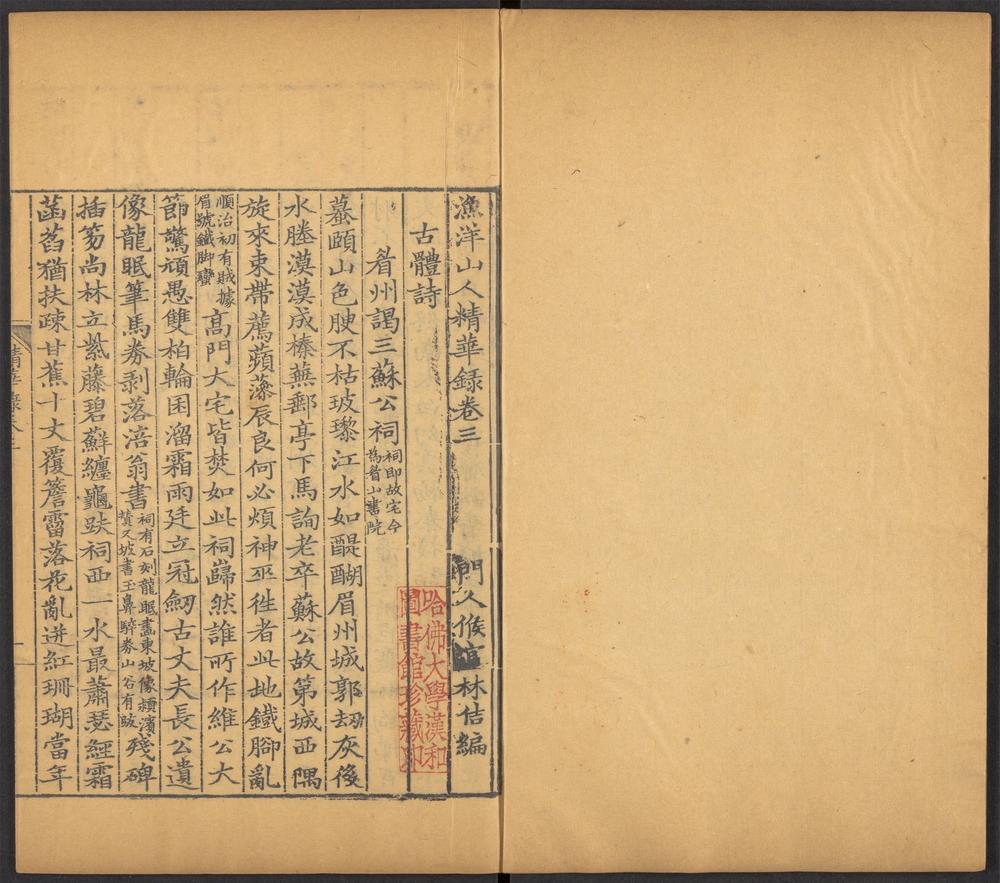 漁洋山人精華錄卷三
門人侯官林佶編
古體詩
眉州謁三蘇公祠
祠即故宅今
為眉山書院
蟇頤山色腴不枯玻瓈江水如醍醐眉州城郭劫灰後
水塍漠漠成榛蕪郵亭下馬詢老卒蘇公故第城西隅
旋來束帶薦蘋藻辰良何必煩神巫徃者此地鐵腳亂
順治初有賊據
眉號鐵脚蠻
高門大宅皆焚如此祠巋然誰所作維公大
節驚頑愚雙柏輪囷溜霜雨廷立冠劒古丈夫長公遺
像龍眠筆馬券剥落涪翁書
祠有石刻龍眠畫東坡像潁濱
贊又坡書玉鼻騂券山谷有跋
殘碑
插笏尚林立紫藤碧蘚纏龜趺祠西一水最蕭瑟經霜
菡萏猶扶疎甘蕉十丈覆簷霤落花亂迸紅珊瑚當年
哈佛大學漢和
圖書館珍藏印